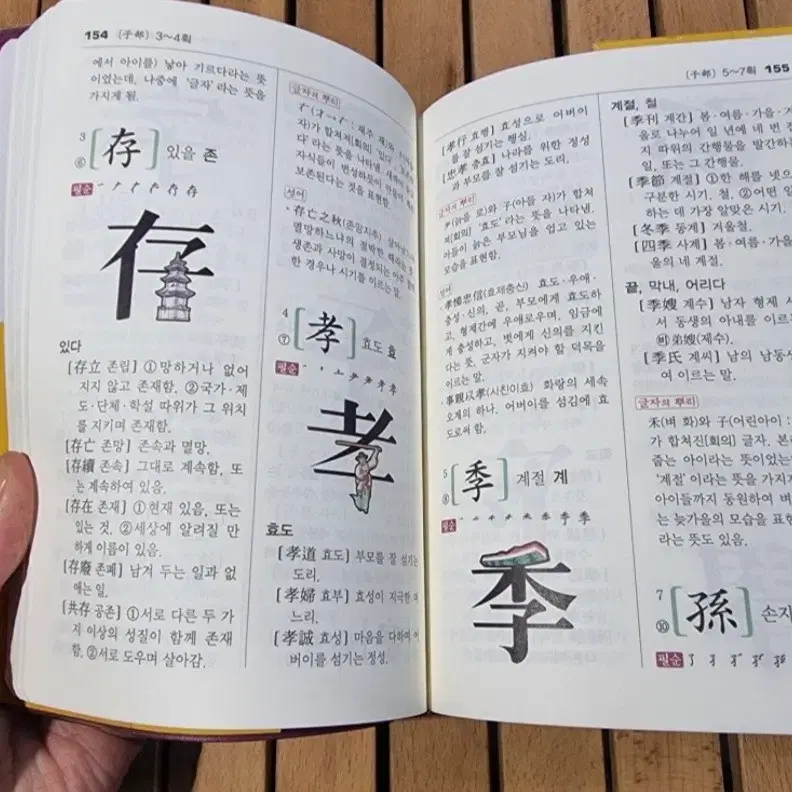 154 〔子部〕 3~4획
에서 아이를) 낳아 기르다라는 뜻
이었는데, 나중에 '글자'라는 뜻을
가지게 됨.
3
⑥ [存] 있을 존
필순
存
있다
[存立 존립] ①망하거나 없어
지지 않고 존재함. ②국가·제
도·단체·학설 따위가 그 위치
를 지키며 존재함.
[存亡 존망] 존속과 멸망.
[存續 존속] 그대로 계속함. 또
는 계속하여 있음.
[存在 존재] ①현재 있음. 또는
있는 것. ②세상에 알려질 만
하게 이름이 있음.
[存廢 존폐] 남겨 두는 일과 없
애는 일.
[共存 공존] ①서로 다른 두 가
지 이상의 성질이 함께 존재
함. ②서로 도우며 살아감.
글자의 뿌리
재주 재)와
자)가 합쳐진[회의]
다'라는 뜻을 나타냄.
자식들이 번성하듯이
보존된다는 것을 표현함.
성어
·存亡之秋(존망지추)
멸망하느냐의 절박한
생존과 사망이 결정되는 아주
한 경우나 시기를 이르는 말.
4
⑦ [孝] 효도 효
필순
孝
효도
[孝道 효도] 부모를 잘 섬기는
도리.
[孝婦 효부] 효성이 지극한 며
느리.
[孝誠 효성] 마음을 다하여 어
버이를 섬기는 정성.
〔子部〕 5~7획 155
[孝行 효행] 효성으로 어버이
를 잘 섬기는 행실.
[忠孝 충효] 나라를 위한 정성
과 부모를 잘 섬기는 도리.
글자의 뿌리
耂(늙을 로)와 子(아들 자)가 합쳐
져[회의] '효도'라는 뜻을 나타냄.
아들이 늙은 부모님을 업고 있는
모습을 표현함.
성어
·孝悌忠信(효제충신) 효도·우애·
충성·신의. 곧, 부모에게 효도하
고, 형제간에 우애로우며, 임금에
게 충성하고, 벗에게 신의를 지킨
다는 뜻. 군자가 지켜야 할 덕목을
이르는 말.
·事親以孝(사친이효) 화랑의 세속
오계의 하나. 어버이를 섬김에 효
도로써 함.
5
⑧ [季] 계절 계
필순
季
계절, 철
[季刊 계간] 봄·여름·가을·겨
울로 나누어 일 년에 네 번
지 따위의 간행물을 발간하는
일. 또는 그 간행물.
[季節 계절] ①한 해를 넷으
구분한 시기. 철. ②어떤 일
하는 데 가장 알맞은 시기.
[冬季 동계] 겨울철.
[四季 사계] 봄·여름·가을
울의 네 계절.
끝, 막내, 어리다
[季嫂 계수] 남자 형제 사
서 동생의 아내를 이르
비 弟嫂(제수).
[季氏 계씨] 남의 남동생
여 이르는 말.
글자의 뿌리
禾(벼 화)와 子(어린아이
가 합쳐진[회의] 글자. 본래
줍는 아이라는 뜻이었는데
'계절'이라는 뜻을 가지게
아이들까지 동원하여 벼
는 늦가을의 모습을 표현
라는 뜻도 있음.
7
⑩ [孫] 손자
필순